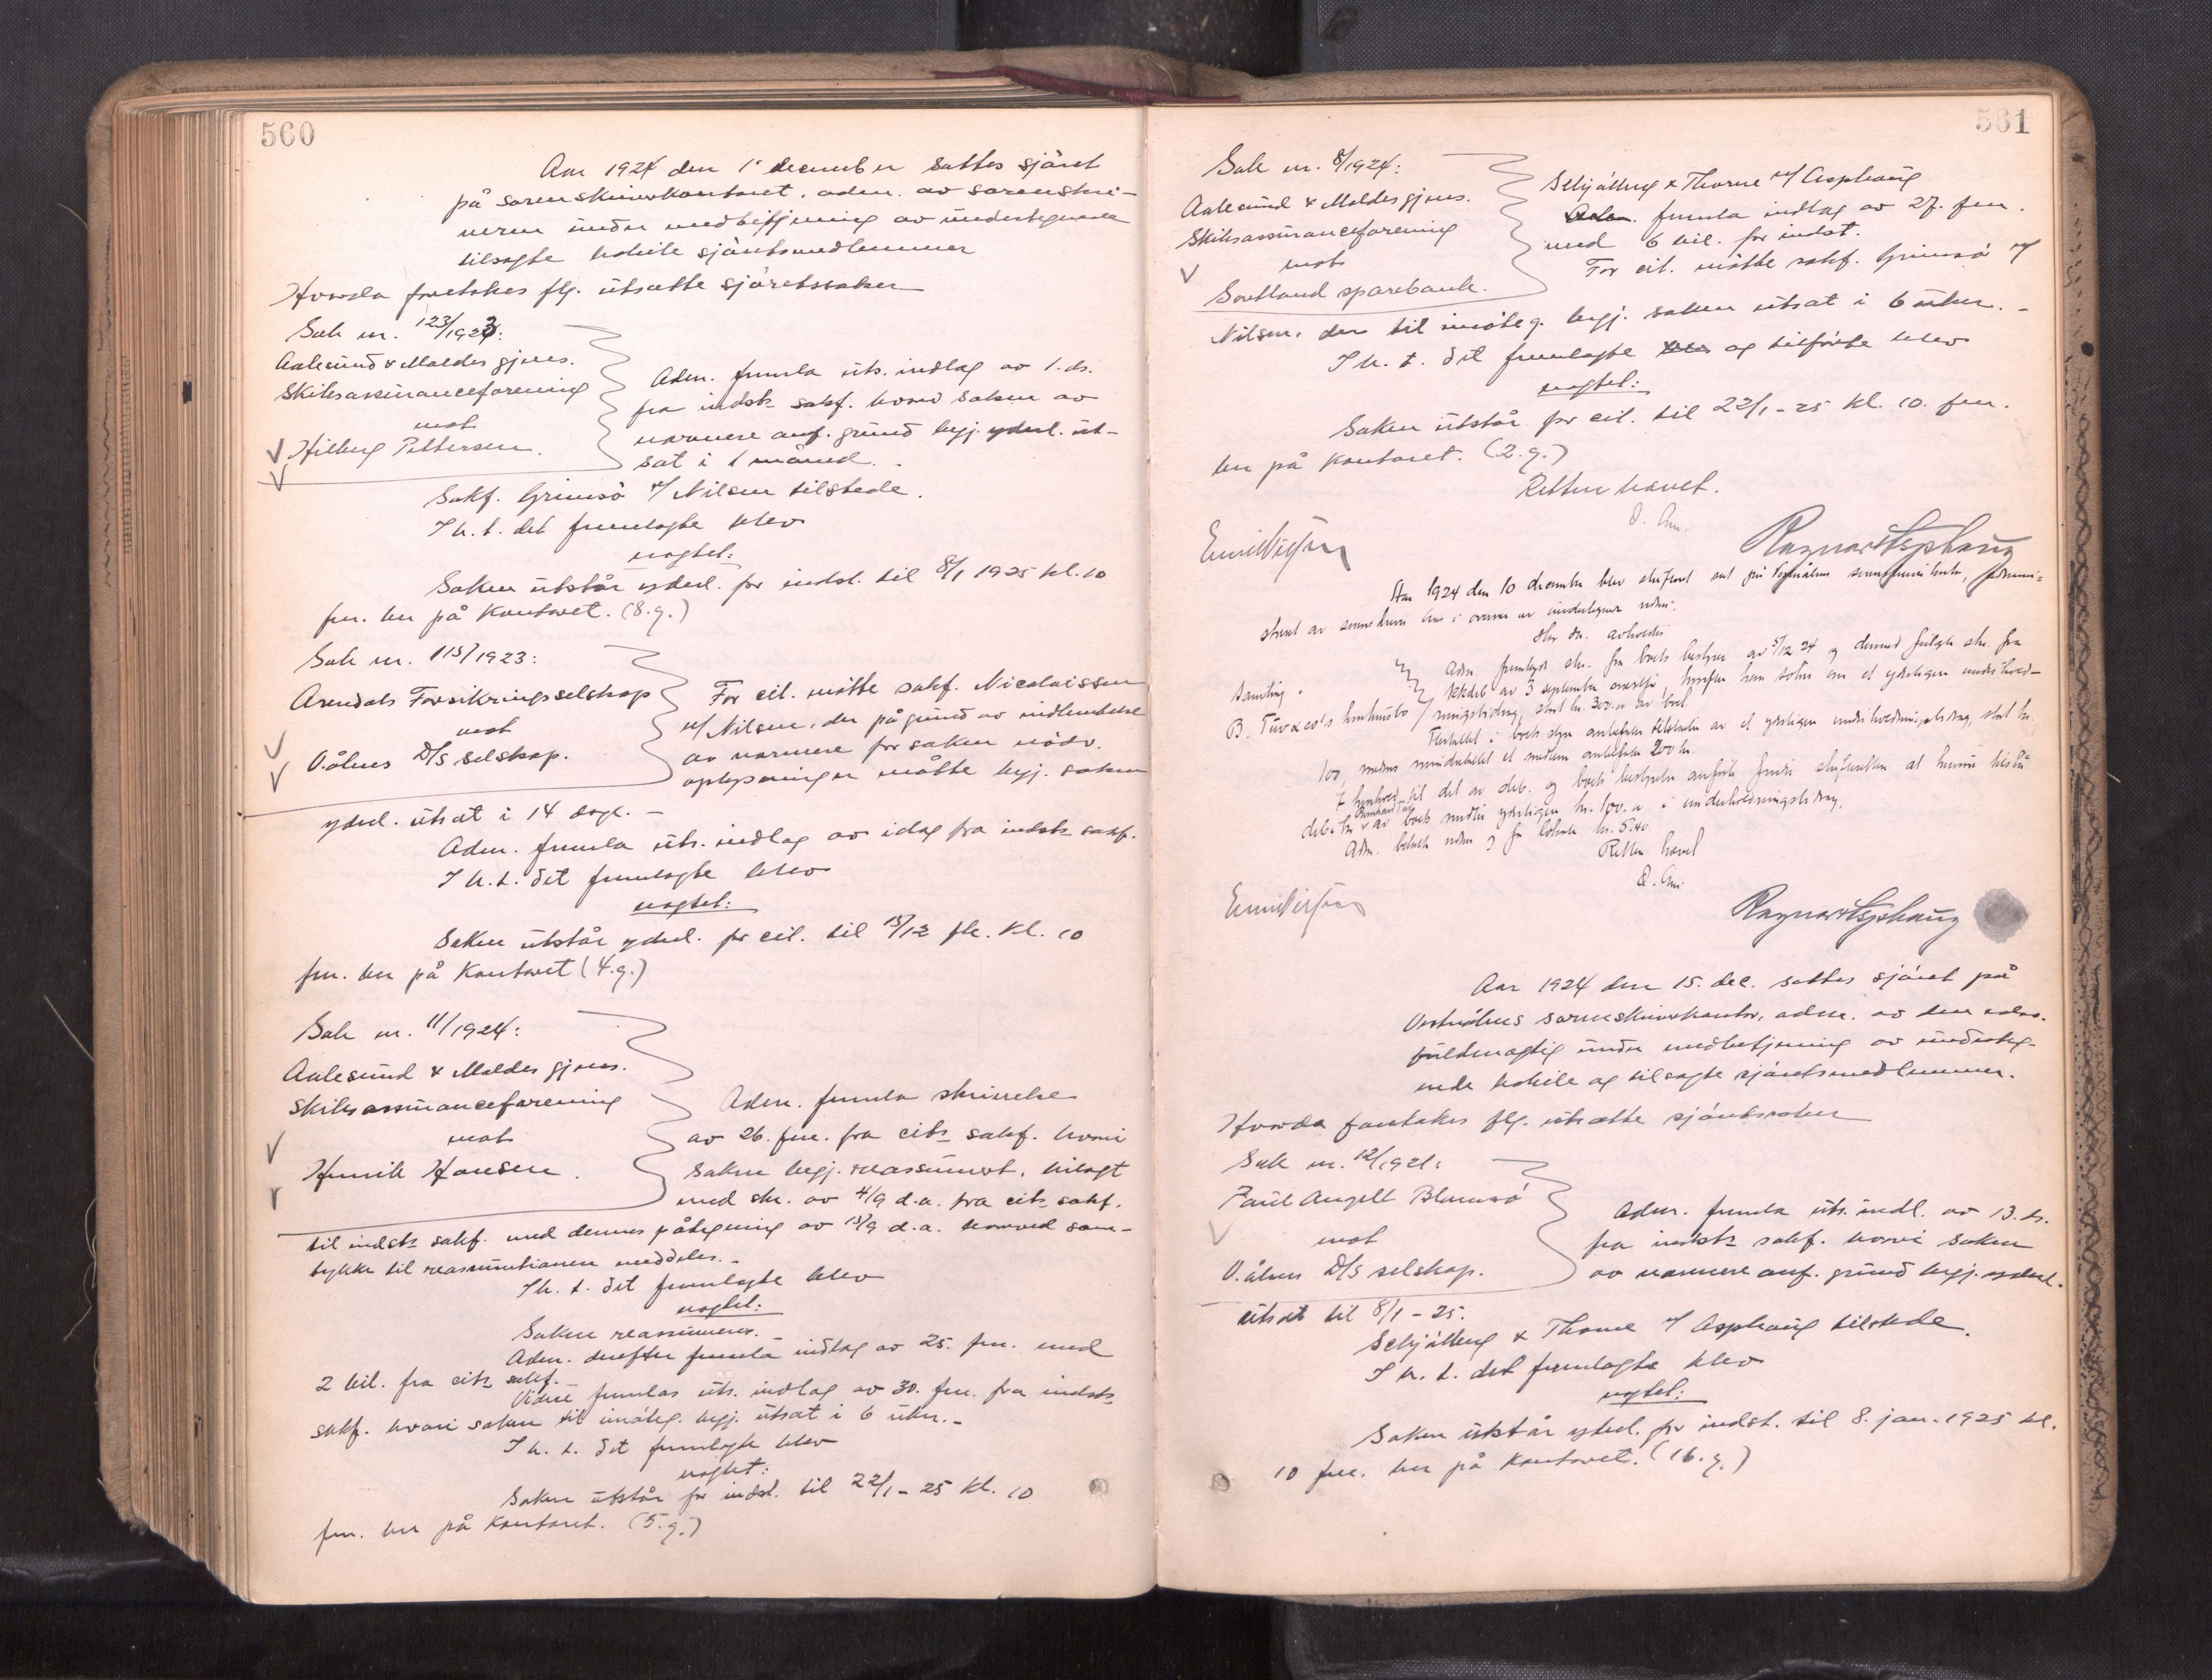 560
Aar 1924 den 1' december sattes sjöret
på sorenskriverkontoret, adm. av sorenskri-
veren under medbetjening av undertegnede
tilsagte kokile sjöretsmedlemmer
Hvorda foretokes flg. utsatte sjöretssaker
Sak nr. 123/1923:
Aalesund & Moldes gjens.
Skibsassuranceforening
mot
Hilberg Pettersen.
Adm. fremla uts. indlag av 1. ds.
fra indst. sakf. hvori saken av
nærmere anf. grund begj. yderl. ut-
sat i 1 måned.
Sakf. Grimsö v/ Nilsen tilstede.
I h. t. det fremlagte blev
vogtet:
Saken utstår yderl. for indst. til 8/1 1925 kl. 10
fm. her på kontoret. (8.g.)
Sak nr. 115/1923:
Arendals Forsikringsselskap
mot
V.ålens D/S selskap.
For cit. mötte sakf. Nicolaissen
v/ Nilsen, der på grund av indhentelse
av nærmere for saken nödv.
oplysninger måtte begj. saken
yderl. utsat i 14 dage. -
Adm. fremla uts. indlag av idag fra indst. sakf.
I h. t. det fremlagte blev
vogtet:
Saken utstår yderl. for cit. til 15/12 fk. kl. 10
fm. her på kontoret (4.g.)
Sak nr. 11/1924:
Aalesund & Moldes gjens.
Skibsassuranceforening
mot
Henrik Hansen.
Adm. fremla skrivelse
av 26. fm. fra cit. sakf. hvori
saken begj. reassumert, bilagt
med skr. av 4/9 d.a. fra cit. sakf.
til indst. sakf. med dennes påtegning av 15/9 d.a. hvorved sam-
tykke til reassumtionen meddeles. -
I h. t. det fremlagte blev
vogtet:
Saken reassumeres. -
Adm. derefter fremla indlag av 25. fm. med
2 bil. fra cit. sakf.
Videre fremlas uts. indlag av 30. fm. fra indst.
sakf. hvori saken til imöteg. begj. utsat i 6 uker. -
I h. t. det fremlagte blev
vogtet:
Saken utstår for indst. til 22/1 - 25 kl. 10
fm. her på kontoret. (5.g.)
561
Sak nr. 8/1924:
Aalesund & Moldes gjens.
Skibsassuranceforening
mot
Sortland sparebank.
Schjölberg & Thorne v/ Asphaug
fremla indlag av 27. fm.
med 6 bil. for indst.
For cit. mötte sakf. Grimsö v/
Nilsen, der til imöteg. begj. saken utsat i 6 uker. -
I h. t. det fremlagte og tilförte blev
vogtet:
Saken utstår for cit. til 22/1 - 25 kl. 10. fm.
her på kontoret. (2.g.)
Retten hævet.
Ragnar Asphaug
Aar 1924 den 10 december blev skifteret sat på Vesterålens sorenskriverkontor, admini-
streret av sorenskriveren i overvær av undertegnede vidne.
Blev da avholdt
Samling i
B. Tuv & Co's konkursbo
Adm. fremlagte skr. fra boets bestyrer av 5/12 24 og dermed fulgte skr. fra
av 3 september hvorefter han söker om et yderligere underhold-
ningsbidrag, stort kr. 300.00 av boet.
100, mens et medlem anbefaler 200 kr.
I henhold til det av deb. og boets bestyrelse anförte fandt skifteretten at kunne tilstå
debitor av boets midler yderligere kr. 100.00 i underholdningsbidrag.
Adm. betalte vidner kr. 5.40
Retten hævet
Ragnar Asphaug
Aar 1924 den 15. dec. sattes sjöret på
Vesterålens sorenskriverkontor, adm. av den edsv.
fuldmægtig under medbetjening av underteg-
nede kokile og tilsagte sjöretsmedlemmer.
Hvorda foretokes flg. utsatte sjöretssaker
Sak nr. 12/1921:
Paul Angell
mot
V.ålens D/S selskap.
Adm. fremla uts. indl. av 13. ds.
fra indst. sakf. hvori saken
av nærmere anf. grund begj. yderl.
utsat til 8/1 - 25.
Schjölberg & Thorne v/ Asphaug tilstede.
I h. t. det fremlagte blev
vogtet:
Saken utstår yderl. for indst. til 8. jan. 1925 kl.
10 fm. her på kontoret. (16.g.)